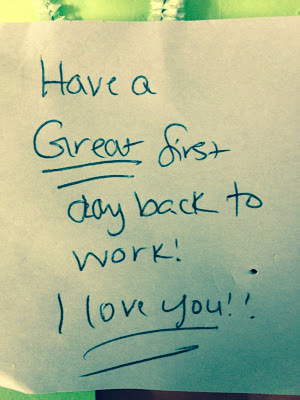 Have a
Great first
day back to
work!
I love you!!